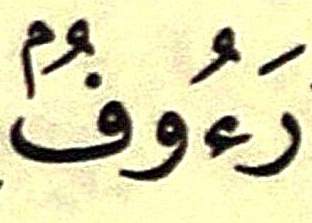 رَءُوفٌۢ